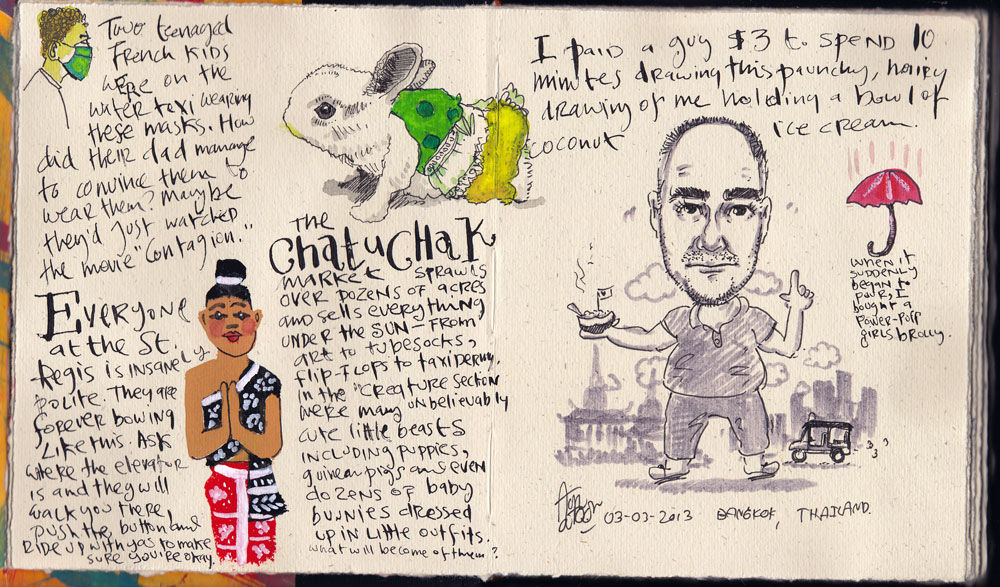 Two teenaged
French kids
were on the
water taxi wearing
these masks. How
did their dad manage
to convince them to
wear them? Maybe
they'd just watched
the movie "Contagion."
Everyone
at the St.
Regis is insanely
polite. They are
forever bowing
like this. Ask
where the elevator
is and they will
walk you there,
push the button and
ride up with you to make
sure you're okay.
THE
CHatuCHaK
market sprawls
over dozens of acres
and sells everything
under the sun – from
art to tubesocks,
flip-flops to taxidermy.
In the "creature section"
were many unbelievably
cute little beasts
including puppies,
guinea pigs and even
dozens of baby
bunnies dressed
up in little outfits.
What will become of them?
I paid a guy $3 to spend 10
minutes drawing this paunchy, hairy
drawing of me holding a bowl of
coconut ice cream.
When it
suddenly
began to
pour, I
bought a
Power-Puff
girls brolly.
03-03-2013 BANGKOK, THAILAND.